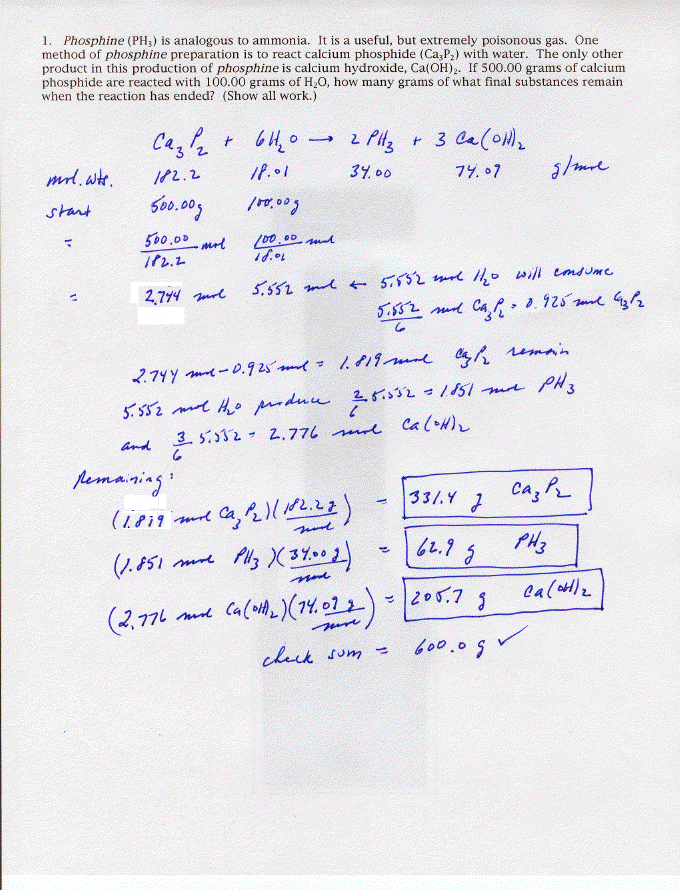 1. Phosphine (PH₃) is analogous to ammonia. It is a useful, but extremely poisonous gas. One
method of phosphine preparation is to react calcium phosphide (Ca₃P₂) with water. The only other
product in this production of phosphine is calcium hydroxide, Ca(OH)₂. If 500.00 grams of calcium
phosphide are reacted with 100.00 grams of H₂O, how many grams of what final substances remain
when the reaction has ended? (Show all work.)
Ca₃P₂ + 6H₂O → 2 PH₃ + 3 Ca(OH)₂
mol. wts. 182.2 18.01 34.00 74.09 g/mol
start 500.00g 100.00g
= 500.00/182.2 mol 100.00/18.01 mol
= 2.744 mol 5.552 mol ← 5.552 mol H₂O will consume
5.552/6 mol Ca₃P₂ = 0.925 mol Ca₃P₂
2.744 mol - 0.925 mol = 1.819 mol Ca₃P₂ remain
5.552 mol H₂O produce 2/6 5.552 = 1.851 mol PH₃
and 3/6 5.552 = 2.776 mol Ca(OH)₂
Remaining:
(1.819 mol Ca₃P₂)(182.2 g/mol) = 331.4 g Ca₃P₂
(1.851 mol PH₃)(34.00 g/mol) = 62.9 g PH₃
(2.776 mol Ca(OH)₂)(74.09 g/mol) = 205.7 g Ca(OH)₂
check sum = 600.0 g ✓